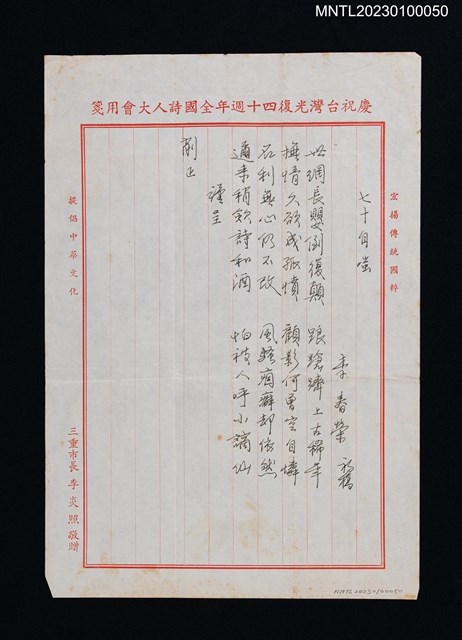 MNTL20230100050
慶祝台灣光復四十週年全國詩人大會用箋
宏揚傳統國粹
七十自嗤
李春榮 初稿
世網長嬰倒復顛 踉蹌躋上古稀年
撫情久欲成孤憤 顧影何曾空自憐
名利無心仍不改 風騷痼癖却依然
邇來稍斂詩和酒 怕被人呼小謫仙
謹呈
削正
提倡中華文化
三重市長李炎照敬贈
NMTL20230100050